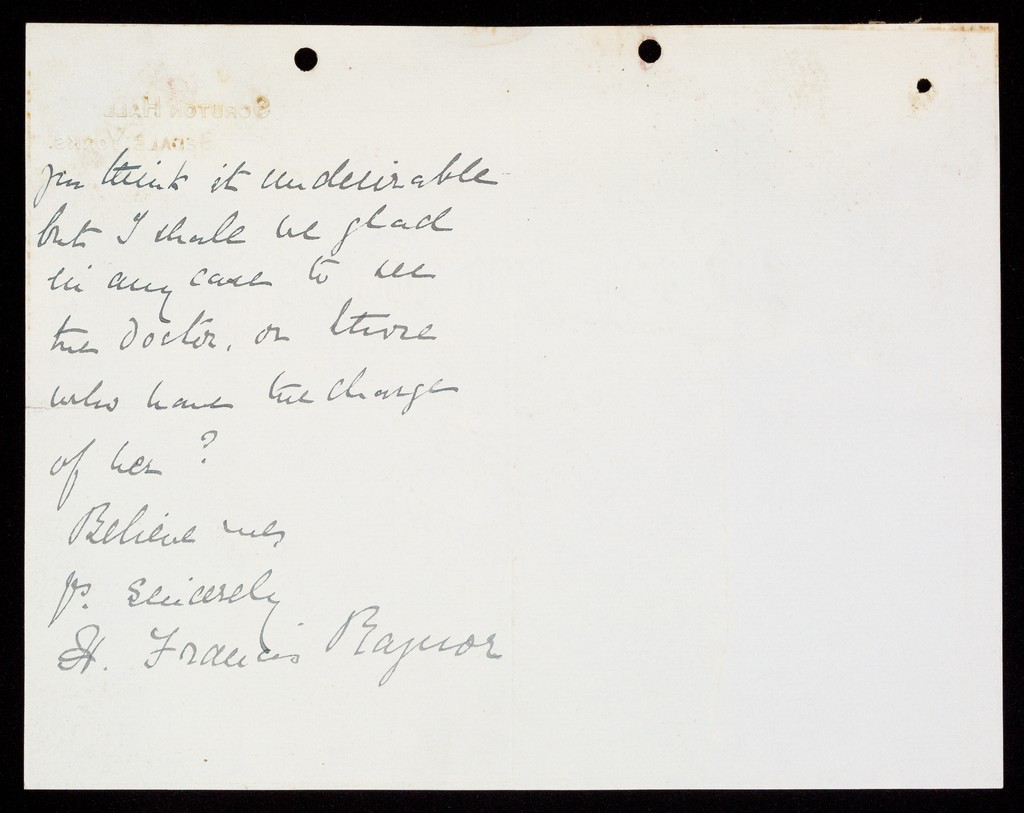 SCRUTON HALL
BEDALE, YORKS.
you think it undesirable
but I shall be glad
in any case to see
the Doctor, or those
who have the charge
of her?
Believe me,
yrs. sincerely
H. Francis Raynor